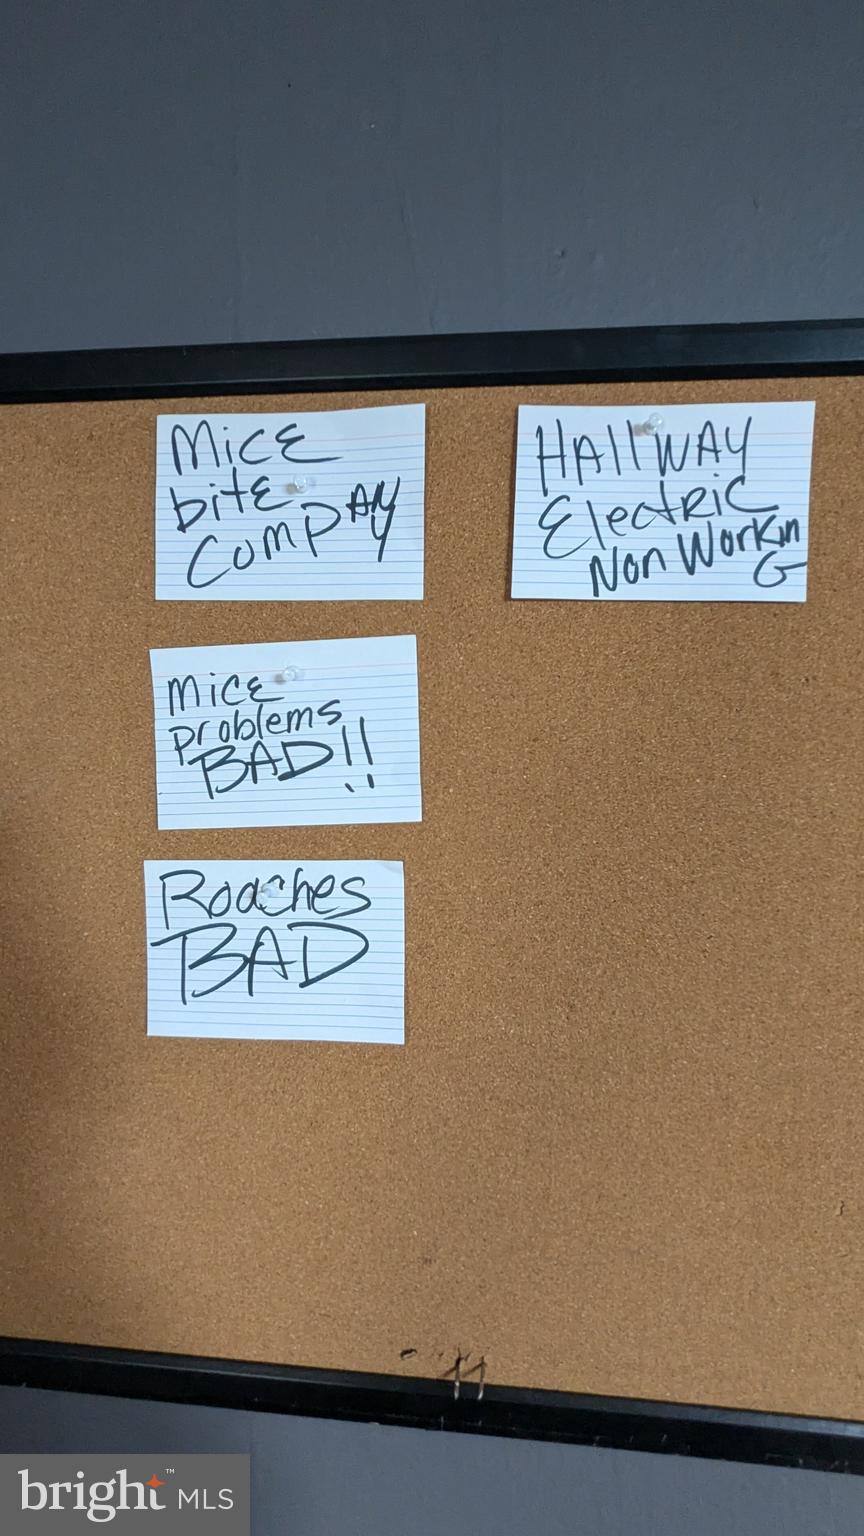 Mice
bite
CompANY
HAllWAY
ElectRiC
Non WorKin
G
Mice
problems
BAD!!
Roaches
BAD
bright™ MLS